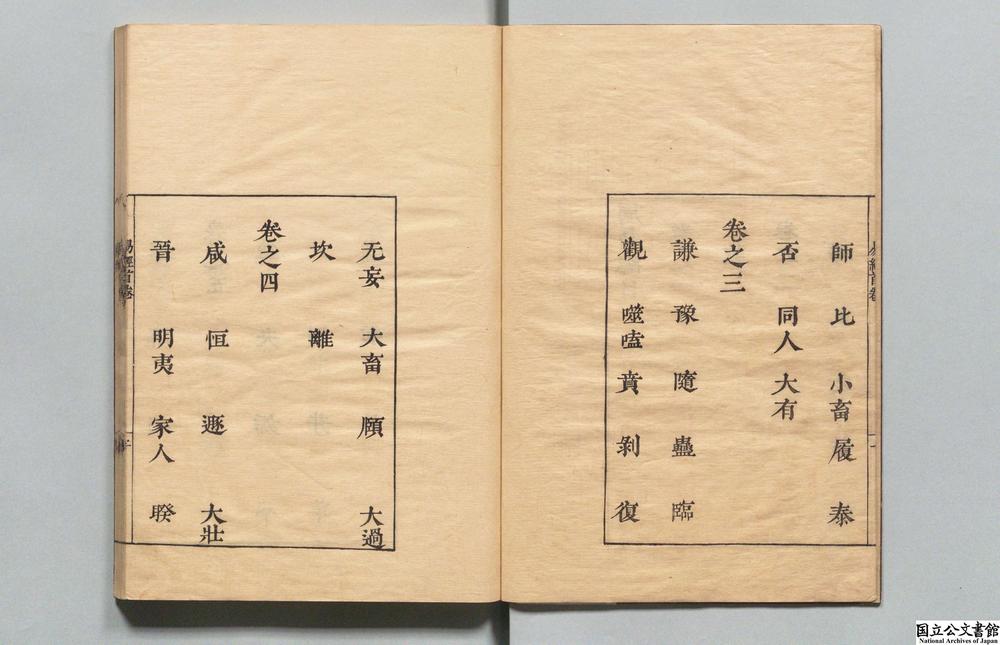 師 比 小畜 履 泰
否 同人 大有
卷之三
謙 豫 隨 蠱 臨
觀 噬嗑 賁 剝 復
无妄 大畜 頤 大過
坎 離
卷之四
咸 恒 遯 大壯
晉 明夷 家人 睽
易經首卷
国立公文書館
National Archives of Japan